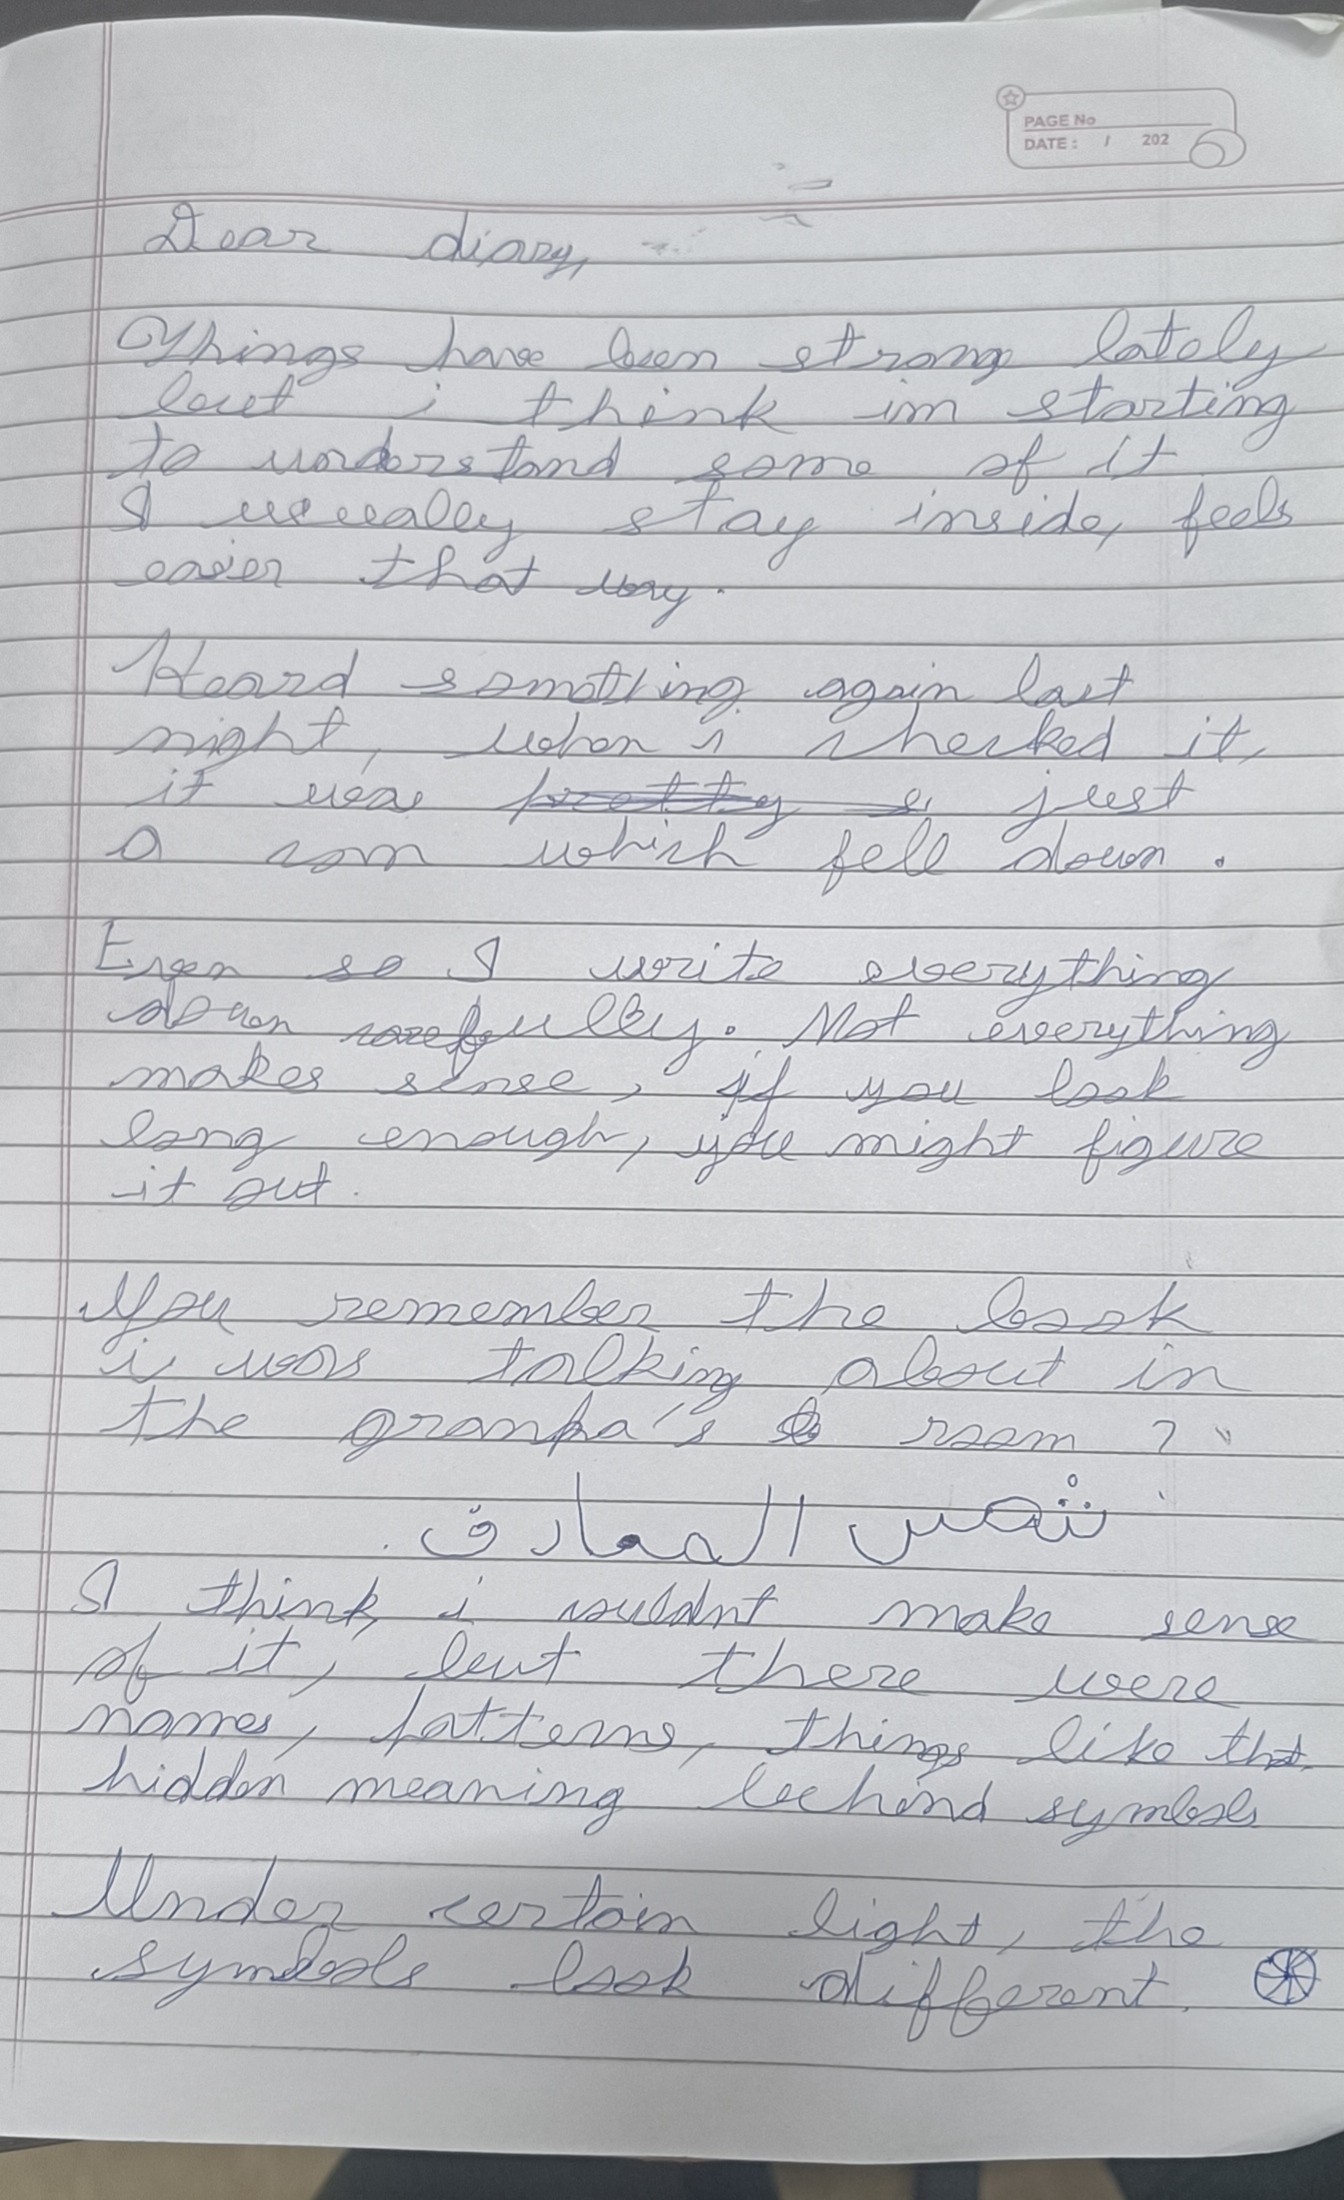 PAGE No
DATE : / 202
Dear diary,
Things have been strang lately
but i think im starting
to understand some of it
I usually stay inside, feels
easier that way.
Heard something again last
night, when i checked it,
it was pretty s just
a can which fell down.
Even so I write everything
down carefully. Not everything
makes sense, if you look
long enough, you might figure
it out.
You remember the book
i was talking about in
the granpa's room ?
شمس المعارف
I think i wouldnt make sense
of it, but there were
names, patterns, things like that.
hidden meaning behind symbols
Under certain light, the
symbols look different.